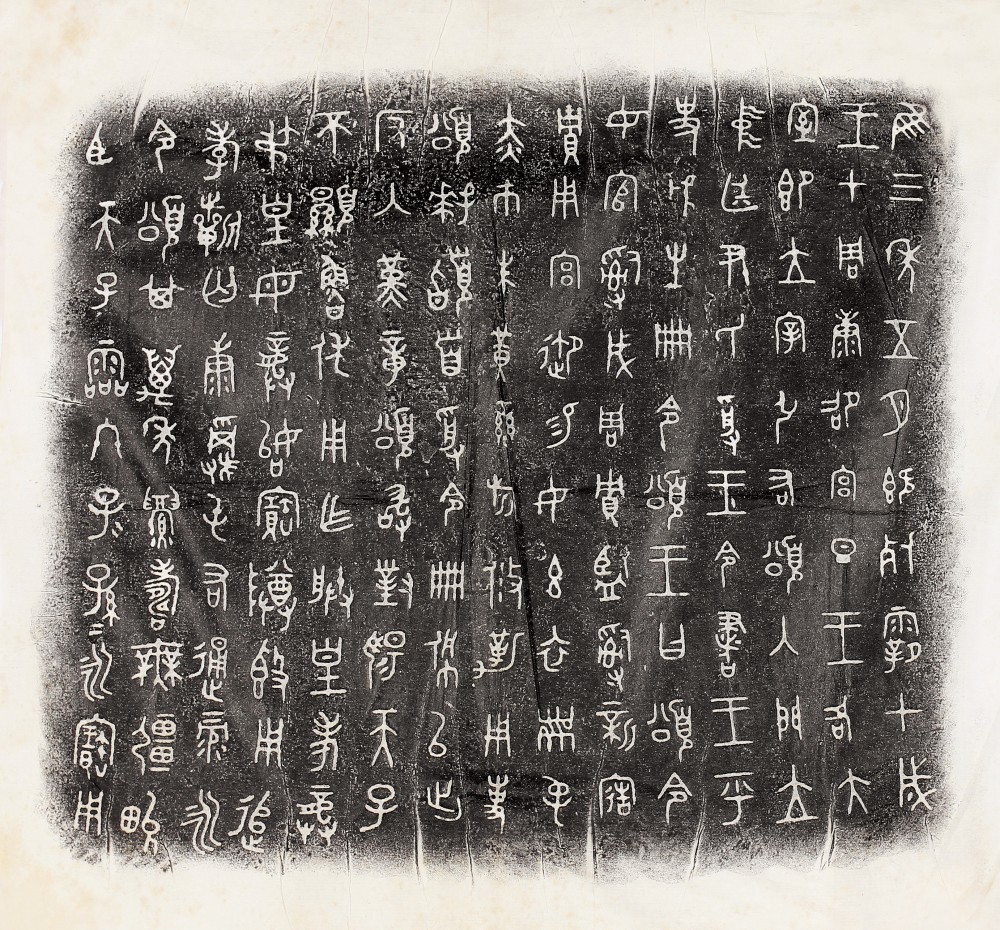 隹三年五月既死霸甲戌
王才周康卲宮旦王各大
室即立宰引右頌入門立
中廷尹氏受王令書王乎
史虢生冊令頌王曰頌令
女官𤔲成周貯監𤔲新寤
貯用宮御易女玄衣黹屯
赤巿朱黃䜌旂攸勒用事
頌拜𩒨首受令冊佩以出
反入堇章頌敢對揚天子
不顯魯休用乍朕皇考龏
弔皇母龏始寶尊簋用追
孝祈匄康𠭯屯右通彔永
令頌其萬年眉壽無疆畯
臣天子霝冬子=孫=永寶用